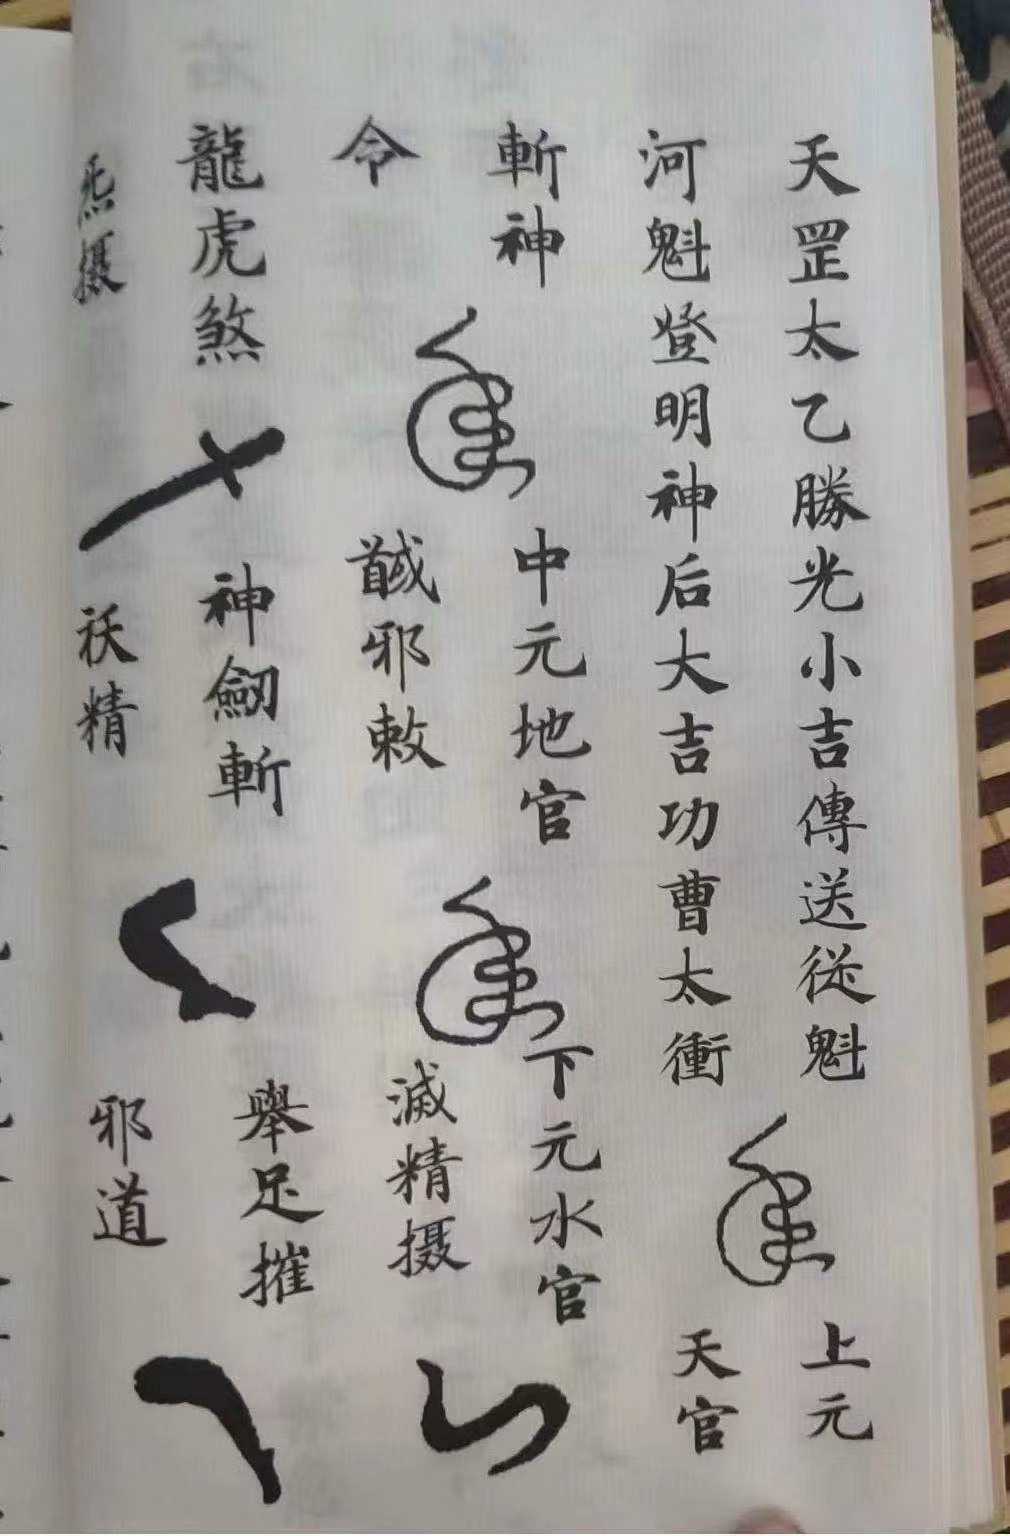 天罡太乙勝光小吉傳送從魁
河魁登明神后大吉功曹太衝
上元
天官
斬神
令
中元地官
馘邪敕
下元水官
滅精摄
龍虎煞
炁摄
神劔斬
祅精
舉足摧
邪道